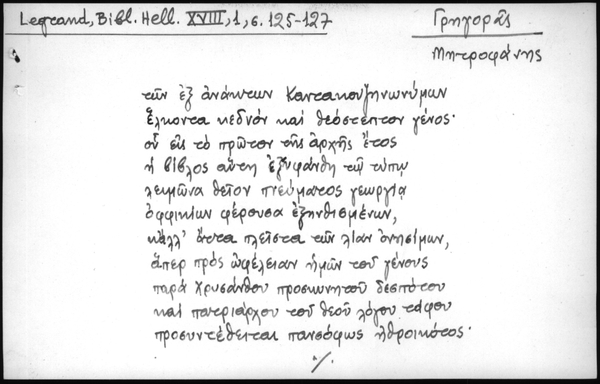 Legrand, Bibl. Hell. XVIII, 1, σ. 125-127
Γρηγορᾶς
Μητροφάνης
τῶν ἐξ ἀνάκτων Καντακουζηνωνύμων
ἕλκοντα κεδνὸν καὶ θεόστεπτον γένος·
οὗ εἰς τὸ πρῶτον τῆς ἀρχῆς ἔτος
ἡ βίβλος αὕτη ἐξυφάνθη τῷ τύπῳ
λειμῶνα θεῖον πνεύματος γεωργίᾳ
ὀφφικίων φέρουσα ἐξηνθισμένων,
κἄλλ' ἄττα πλεῖστα τῶν λίαν ὀνησίμων,
ἅπερ πρὸς ὠφέλειαν ἡμῶν τοῦ γένους
παρὰ Χρυσάνθου προσκυνητοῦ δεσπότου
καὶ πατριάρχου τοῦ θεοῦ λόγου τάφου
προσυντέθειται πανσόφως ἠθροικότος·
./.